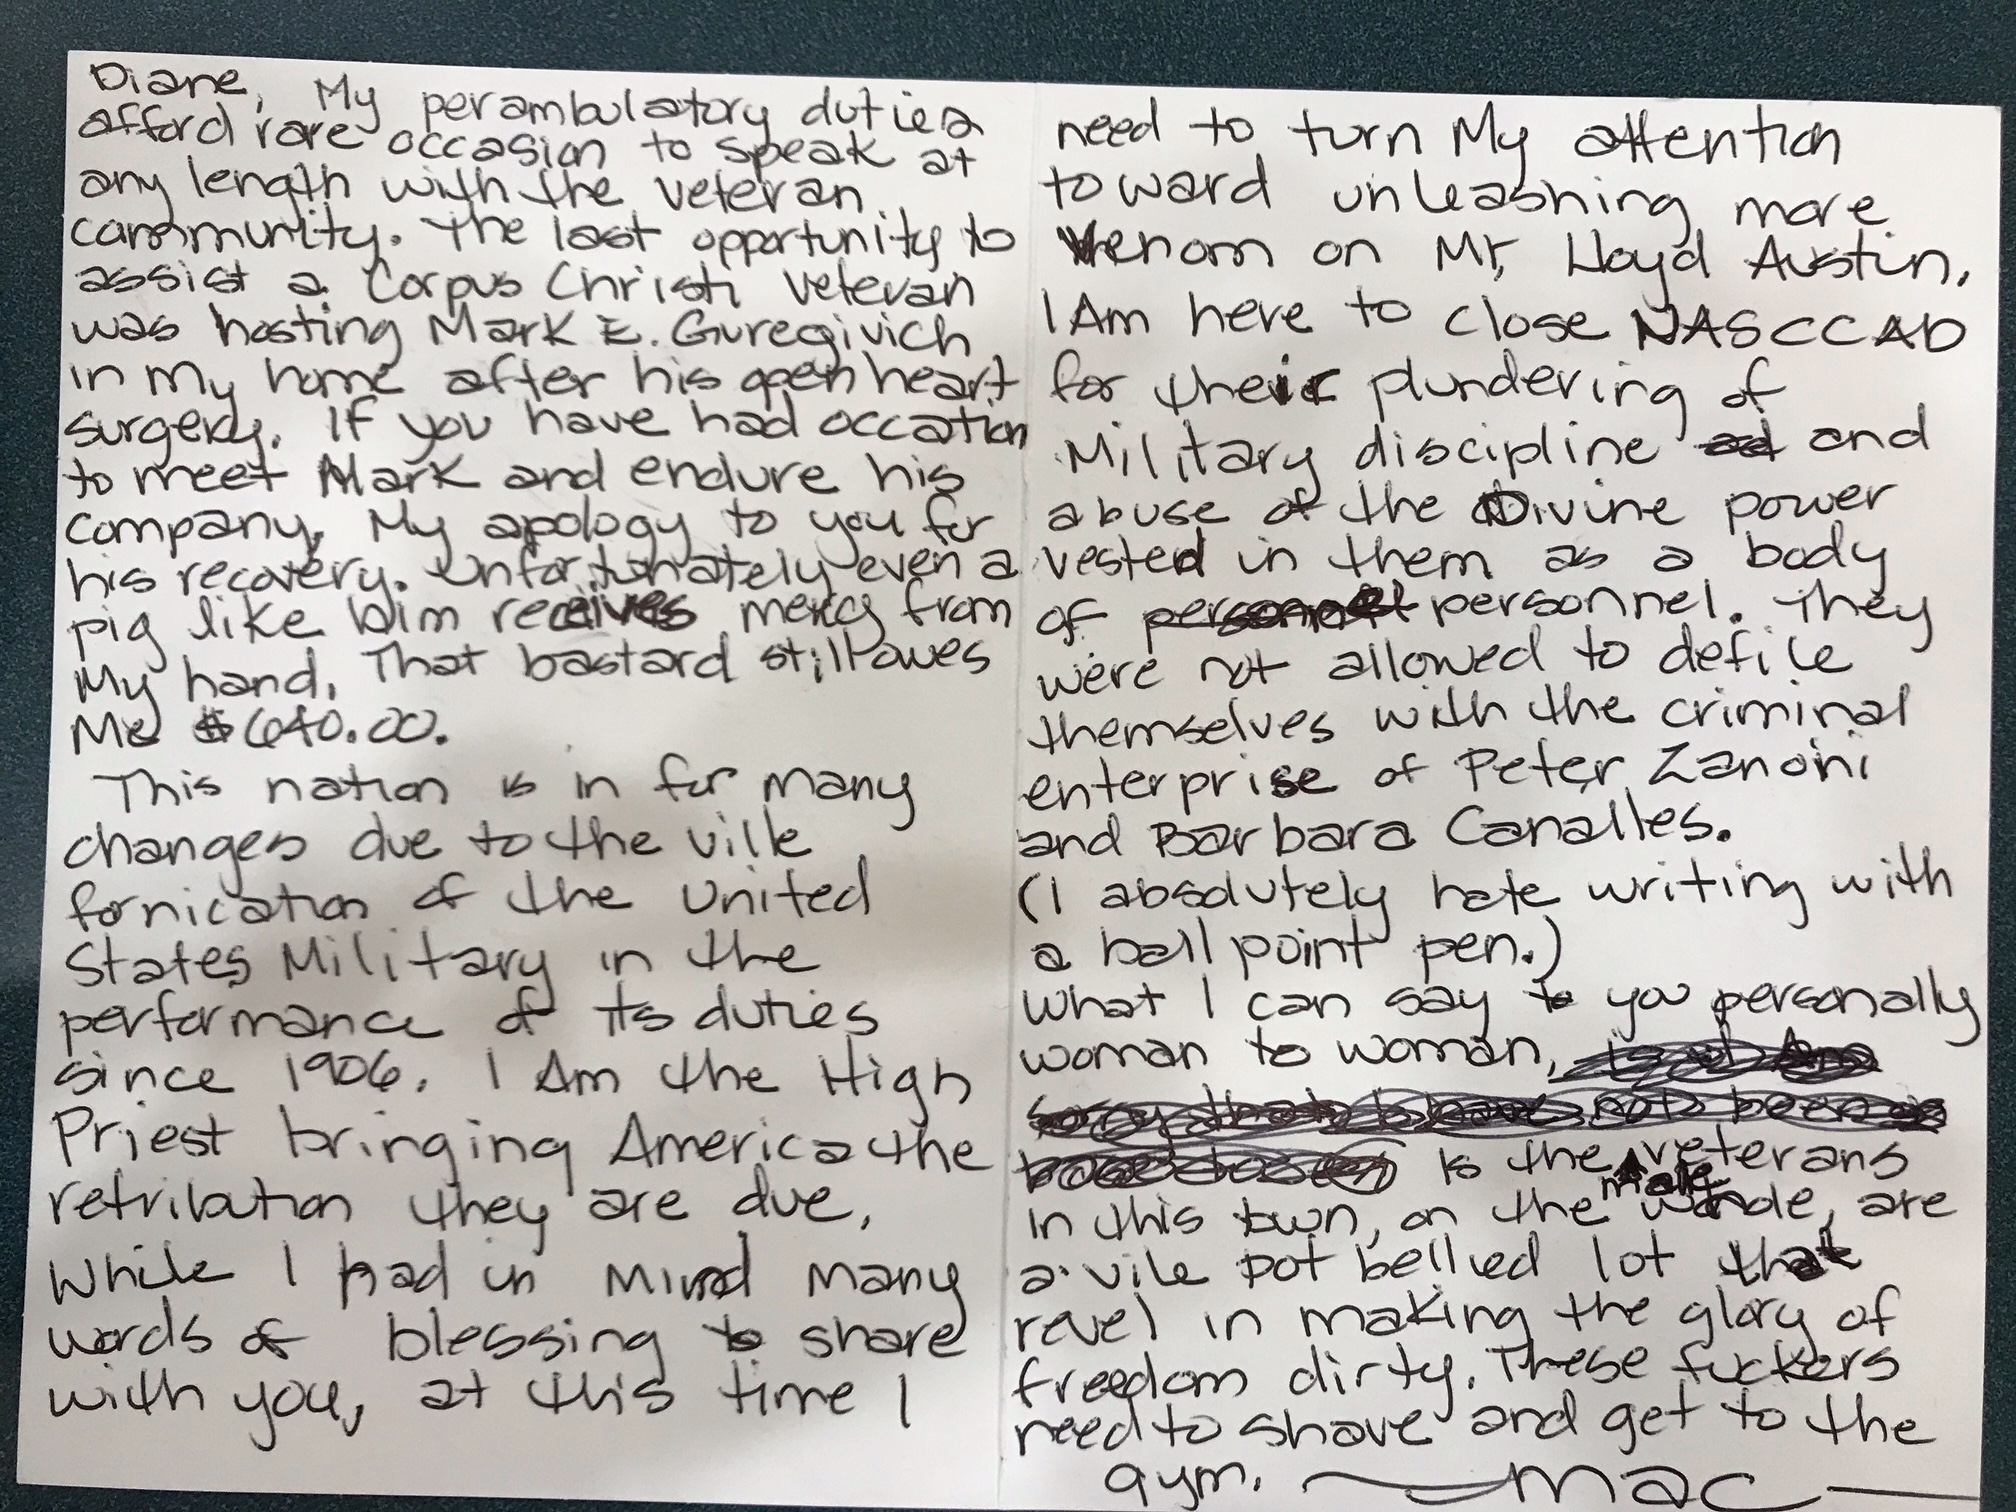 Diane, My perambulatory duties
afford rare occasion to speak at
any length with the veteran
community. The last opportunity to
assist a Corpus Christi veteran
was hosting Mark E. Guregivich
in my home after his open heart
surgery. If you have had occation
to meet Mark and endure his
company, My apology to you for
his recovery. Unfortunately even a
pig like him receives mercy from
My hand. That bastard still owes
Me $640.00.
This nation is in for many
changes due to the ville
fornication of the United
States Military in the
performance of its duties
since 1906. I Am the High
Priest bringing America the
retribution they are due.
While I had in Mind Many
words of blessing to share
with you, at this time I
need to turn My attention
toward unleashing more
venom on Mr. Lloyd Austin.
I Am here to close NASCCAD
for their plundering of
Military discipline and
abuse of the Divine power
vested in them as a body
of personnel. They
were not allowed to defile
themselves with the criminal
enterprise of Peter Zanoni
and Barbara Canalles.
(I absolutely hate writing with
a ball point pen.)
What I can say to you personally
woman to woman,
is the male veterans
in this town, on the whole, are
a vile pot bellied lot that
revel in making the glory of
freedom dirty. These fuckers
need to shave and get to the
gym. Mac